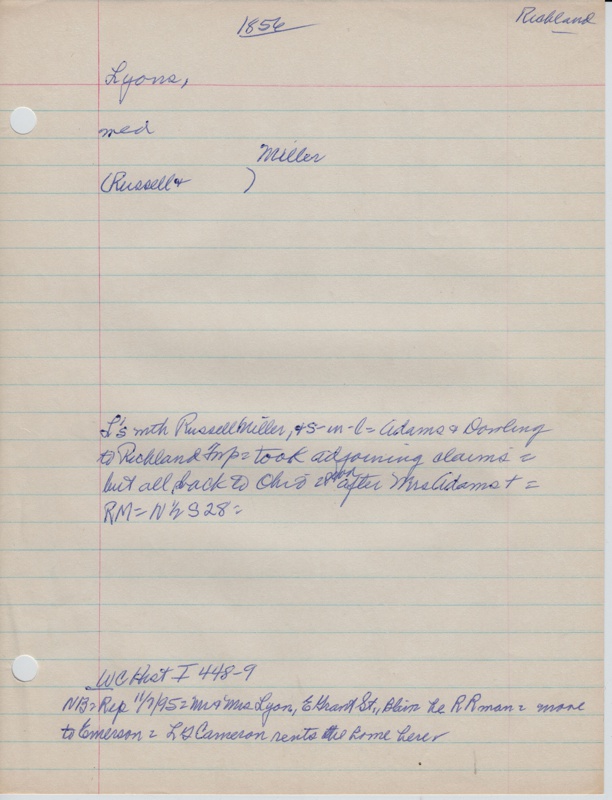 1856
Richland
Lyons,
med
Miller
(Russell & )
L's with Russell Miller, & S-in-l = Adams & Dowling
to Richland Twp = took adjoining claims =
but all back to Ohio = soon after Mrs Adams + =
RM = N½ S28 =
WC Hist I 448-9
NB = Rep 11/7/95 = Mr & Mrs Lyon, E Grant St., Blair he RR man = move
to Emerson = L S Cameron rents the home here